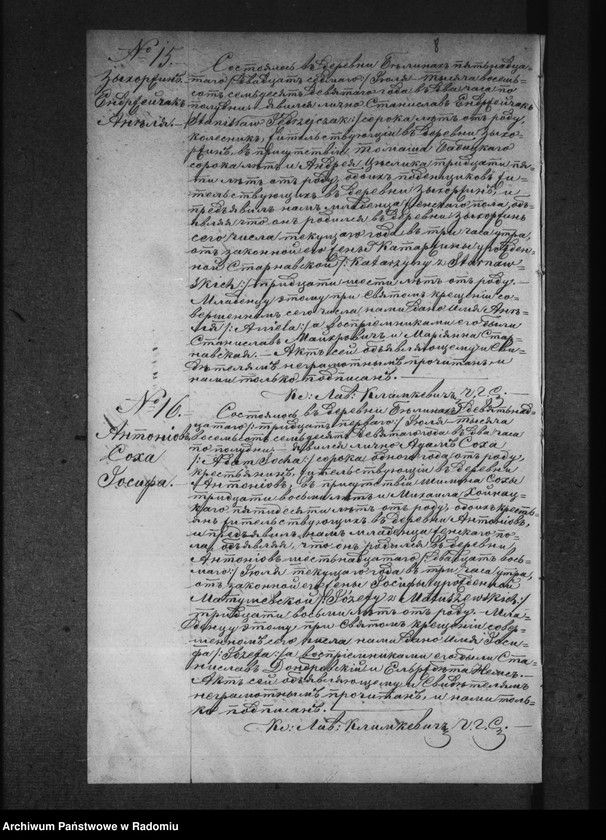 8
№ 15.
Зыхоржинъ
Ендржейчакъ
Анѣля.
Состоялось въ деревнѣ Бѣлинахъ пятьнадца=
таго /:двадцать седьмаго:/ Іюля тысяча восемь=
сотъ семьдесятъ девятаго года въ два часа по
полудни, явился лично Станиславъ Ендржейчакъ
/:Stanisław Jędrzejczak:/ сорока лѣтъ отъ роду,
колесникъ, жительствующій въ деревнѣ Зыхо=
ржинъ, въ присутствіи Томаша
сорока лѣтъ и Андрея Цѣслика тридцати пя=
ти лѣтъ отъ роду, обоихъ поденщиковъ жи=
тельствующихъ въ деревнѣ Зыхоржинъ, и
предъявилъ намъ младенца женскаго пола, объ=
являя что онъ родился въ деревнѣ Зыхоржинъ
сего числа текущаго года въ три часа утра,
отъ законной его жены Катаржины урожден=
ной Старнавской /:Katarzyny z Starnaw=
skich:/ тридцати шести лѣтъ отъ роду. —
Младенцу этому при Святомъ крещеніи со=
вершенномъ сего числа нами дано имя Анѣ=
ля /:Aniela:/ а воспріемниками его были
Станиславъ и Маріянна Стар=
навская. — Актъ сей объявляющему и Сви=
дѣтелямъ неграмотнымъ прочитанъ, и
нами только подписанъ.
Кс: Лав: Климкевичъ Ч.Г.С.
№ 16.
Антоніовъ
Соха
Іосифа. —
Состоялось въ деревнѣ Бѣлинахъ девятьнад=
цатаго /:тридцать перваго:/ Іюля тысяча
восемьсотъ семьдесятъ девятаго года въ два часа
по полудни, явился лично Адамъ Соха
/:Adam Socha:/ сорока одного года отъ роду,
крестьянинъ, жительствующій въ деревнѣ
Антоніовъ, въ присутствіи Сохи
тридцати восьми лѣтъ и Михаила Хойнац=
каго пятидесяти лѣтъ отъ роду, обоихъ кресть=
янъ жительствующихъ въ деревнѣ Антоніовъ,
и предъявилъ намъ младенца женскаго по=
ла, объявляя, что онъ родился въ деревнѣ
Антоніовъ шестьнадцатаго /:двадцать вось=
маго:/ Іюля текущаго года въ три часа утра,
отъ законной его жены Іосифы урожденной
Матушевской /:Józefy z Matuszewskich:/
тридцати восьми лѣтъ отъ роду. — Мла=
денцу этому при Святомъ крещеніи совер=
шенномъ сего числа нами дано имя Іоси=
фа /:Józefa:/ а воспріемниками его были Ста=
ниславъ и Ельжбѣта —
Актъ сей объявляющему и Свидѣтелямъ
неграмотнымъ прочитанъ, и нами толь=
ко подписанъ.
Кс: Лав: Климкевичъ Ч.Г.С.
Archiwum Państwowe w Radomiu